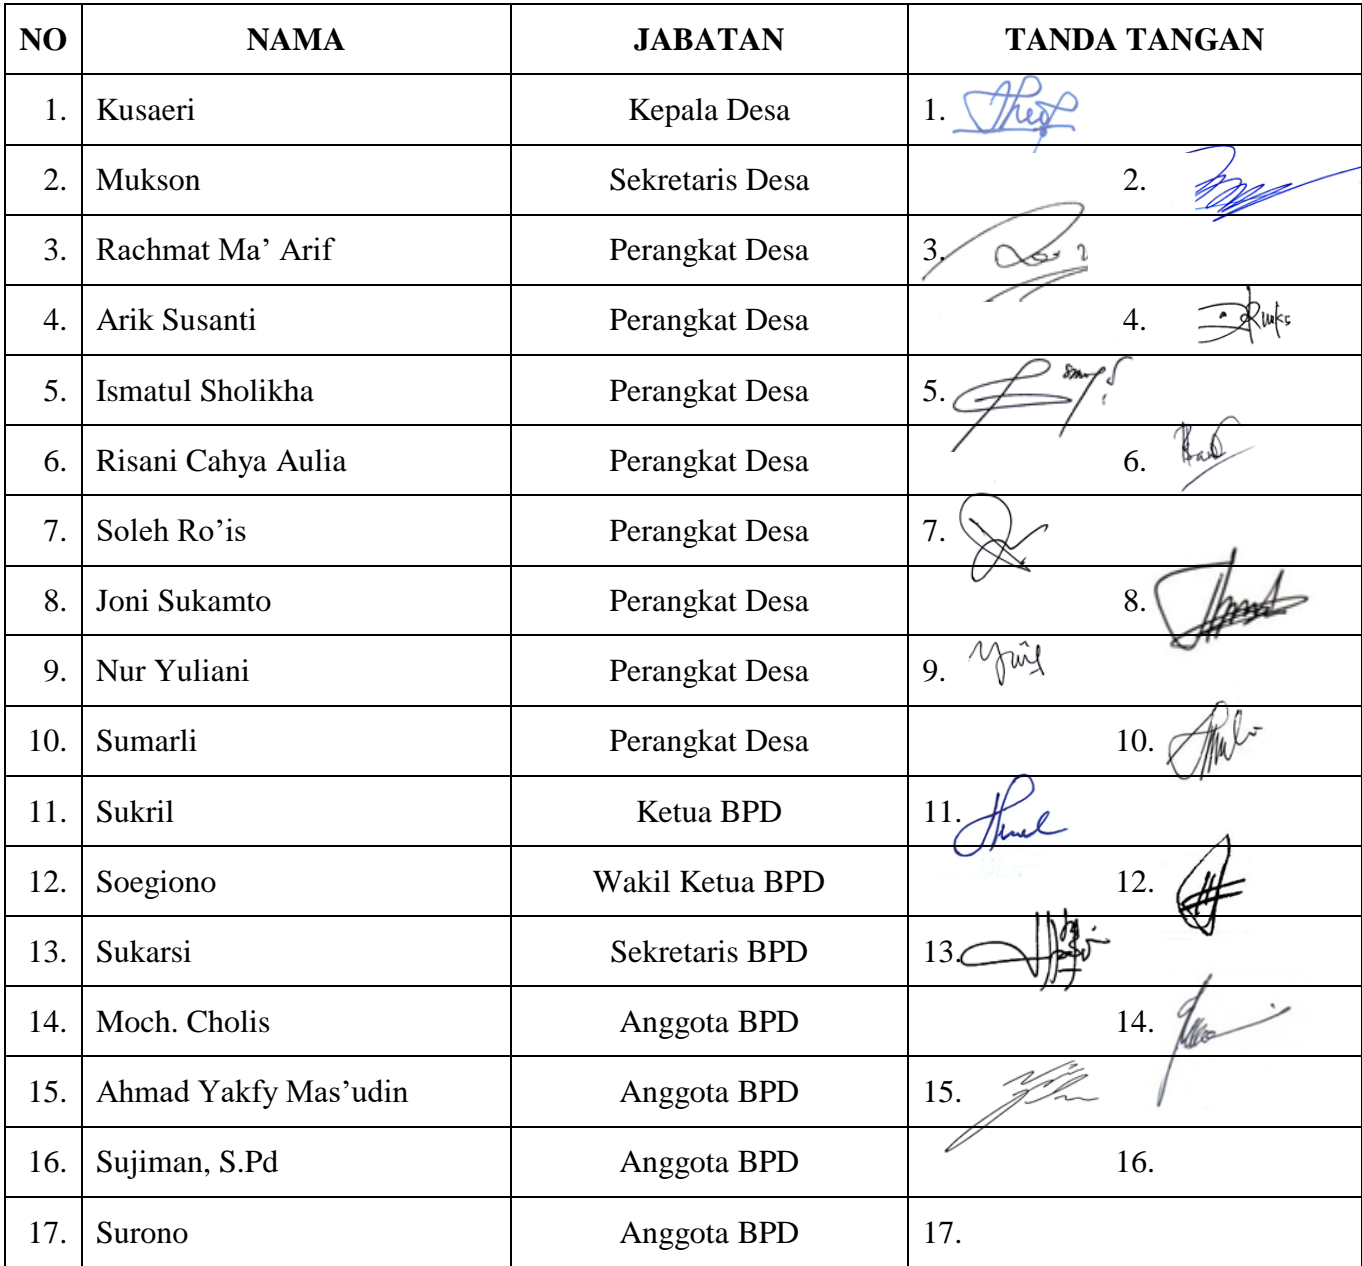 NO NAMA JABATAN TANDA TANGAN
1. Kusaeri Kepala Desa 1.
2. Mukson Sekretaris Desa 2.
3. Rachmat Ma’ Arif Perangkat Desa 3.
4. Arik Susanti Perangkat Desa 4.
5. Ismatul Sholikha Perangkat Desa 5.
6. Risani Cahya Aulia Perangkat Desa 6.
7. Soleh Ro’is Perangkat Desa 7.
8. Joni Sukamto Perangkat Desa 8.
9. Nur Yuliani Perangkat Desa 9.
10. Sumarli Perangkat Desa 10.
11. Sukril Ketua BPD 11.
12. Soegiono Wakil Ketua BPD 12.
13. Sukarsi Sekretaris BPD 13.
14. Moch. Cholis Anggota BPD 14.
15. Ahmad Yakfy Mas’udin Anggota BPD 15.
16. Sujiman, S.Pd Anggota BPD 16.
17. Surono Anggota BPD 17.